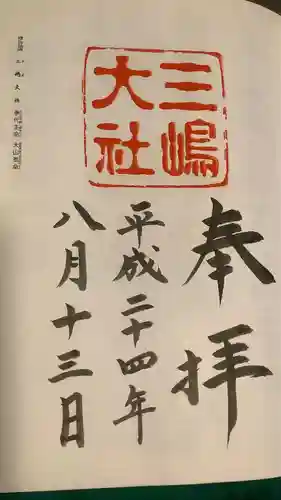 三嶋
大社
奉拝
平成二十四年
八月十三日
三嶋大社